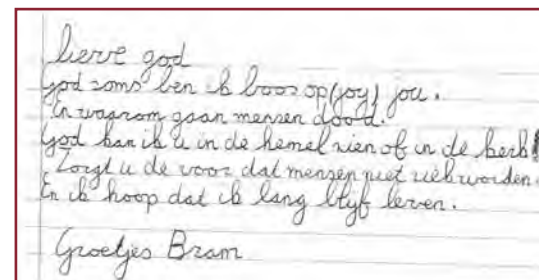 lieve god
god soms ben ik boos op (joy) jou.
En waarom gaan mensen dood.
God kan ik u in de hemel zien of in de kerk
Zorgt u de voor dat mensen niet ziek worden.
En ik hoop dat ik lang blijf leven.
Groetjes Bram